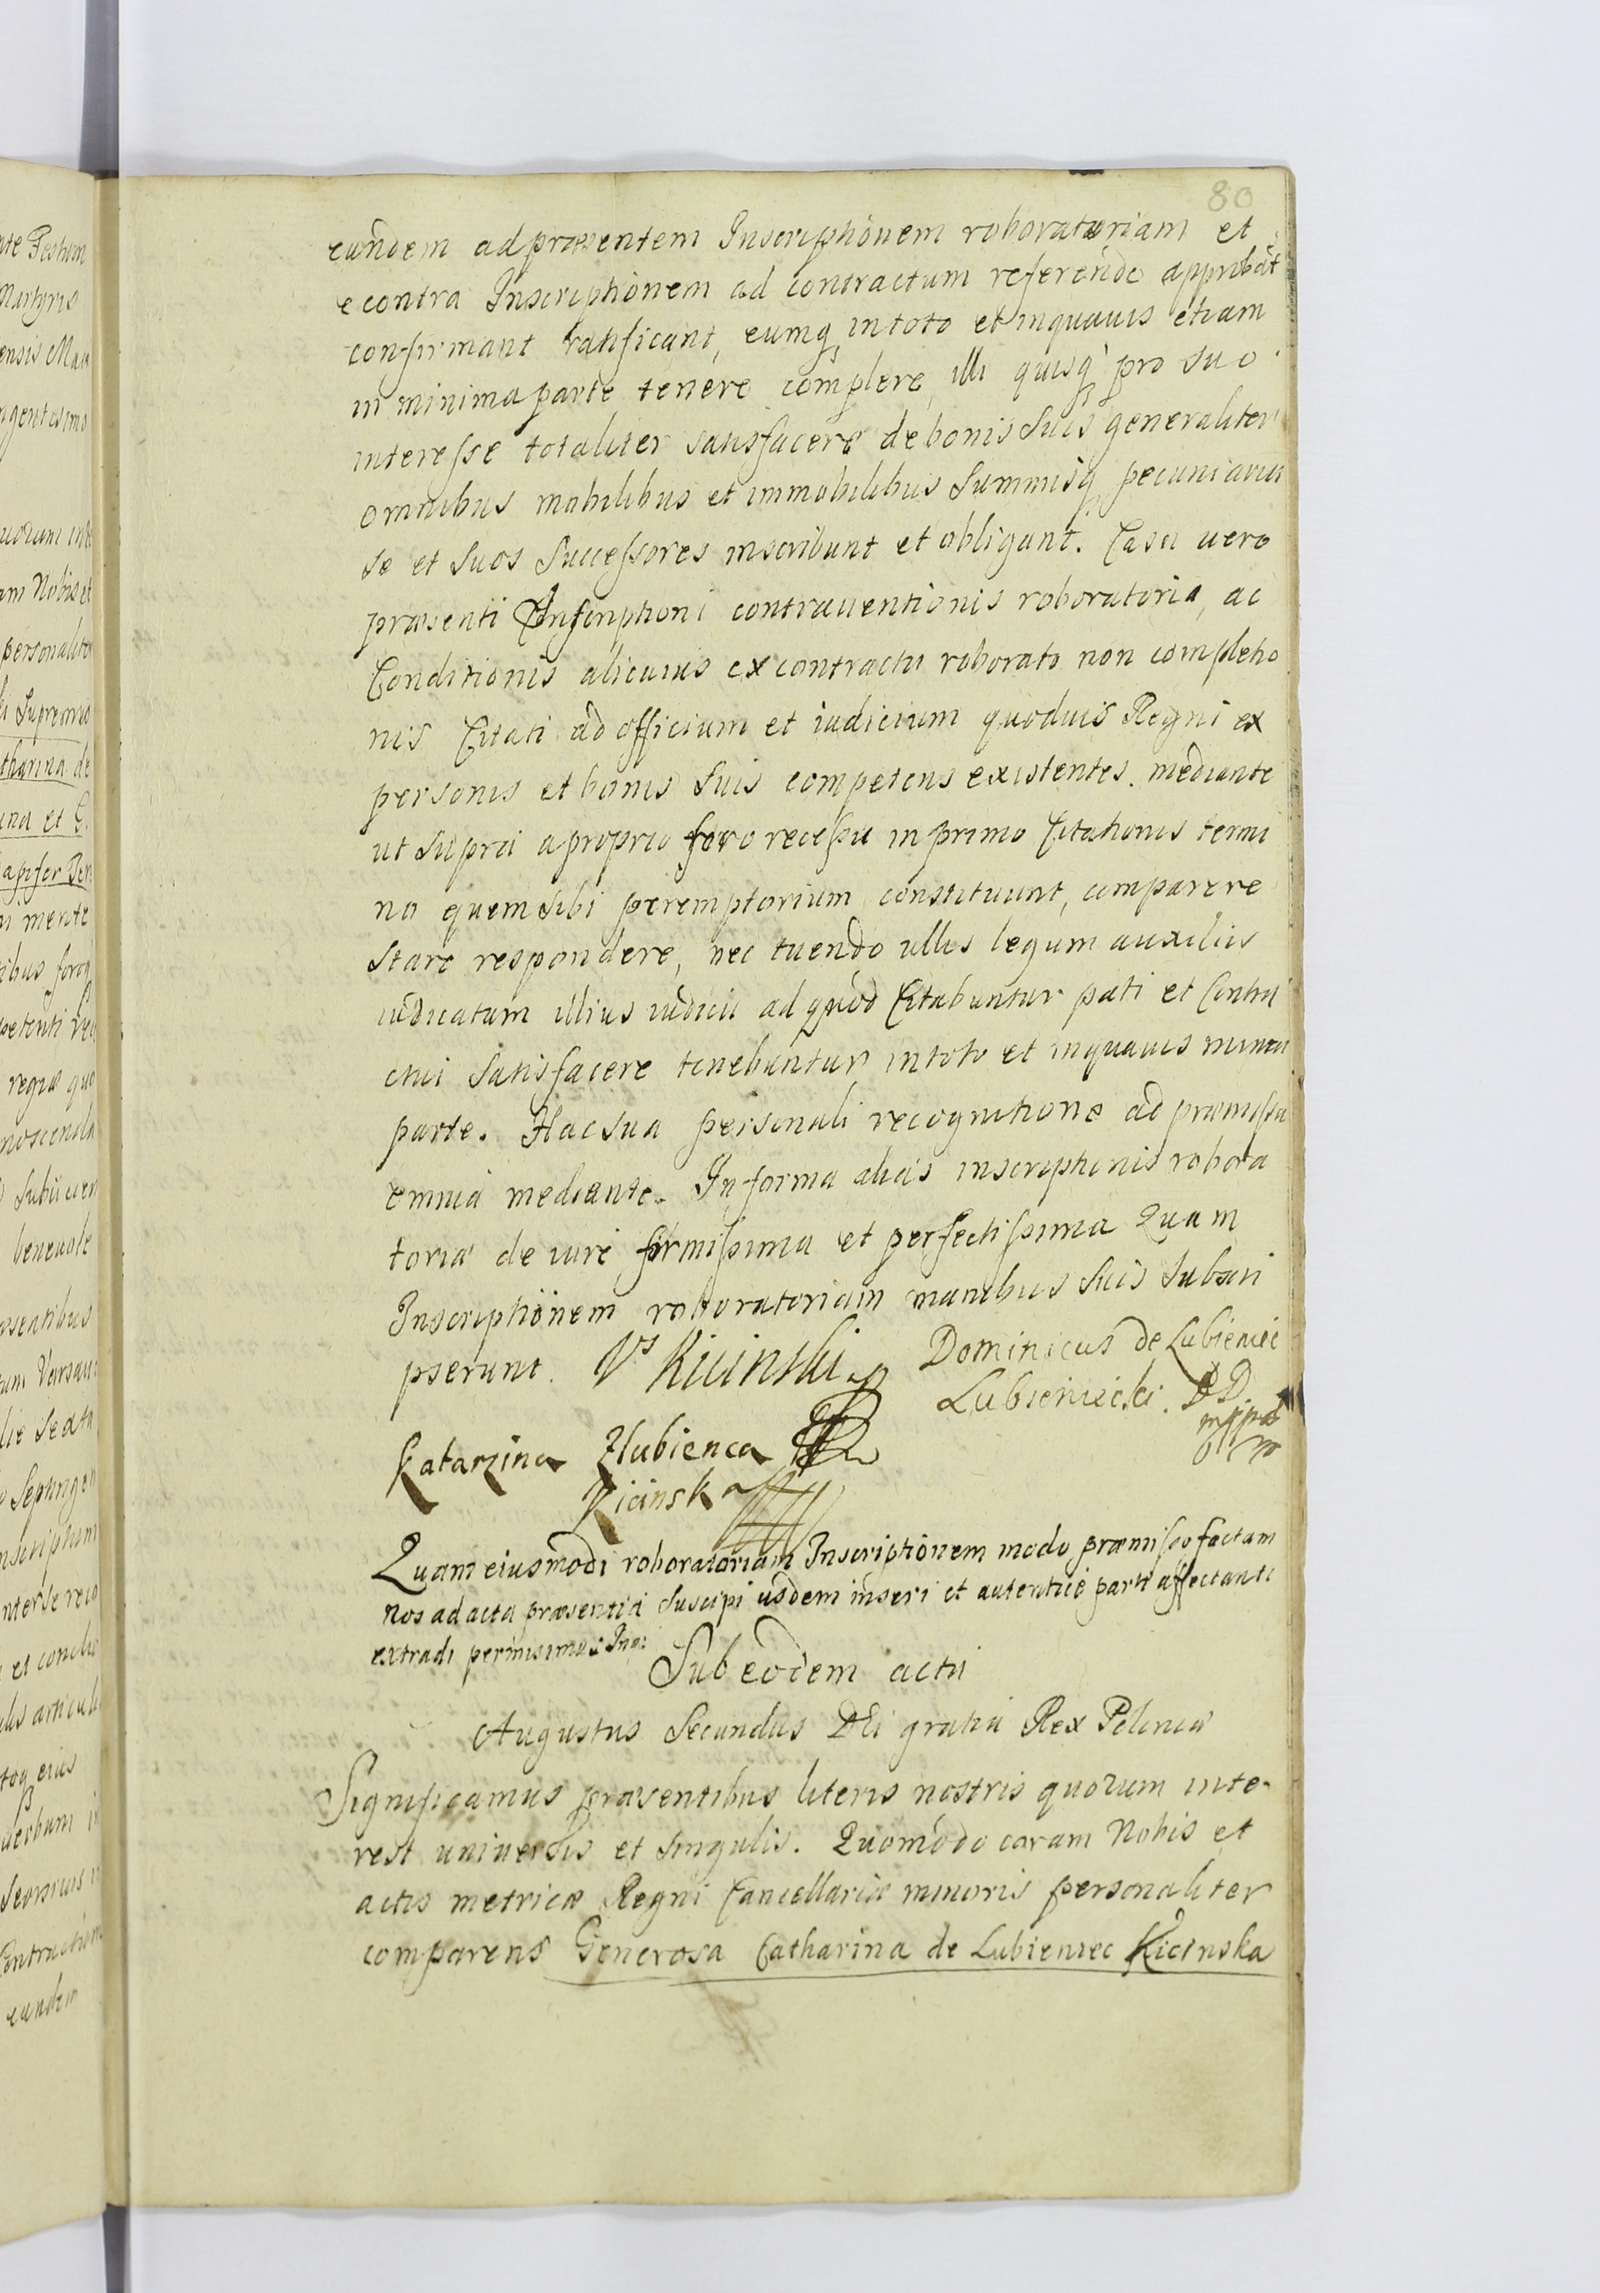 80
eundem ad præsentem Inscriptionem roboratoriam et
econtra Inscriptionem ad contractum referendo approbāt
confirmant ratificant, eumq in toto et inquavis etiam
in minima parte tenere complere, illi quisq pro suo
interesse totaliter satisfacere de bonis suis generaliter
omnibus mobilibus et immobilibus Summisq pecuniariis
se et suos Successores inscribunt et obligant. Casu vero
præsenti Inscriptioni contraventionis roboratoriæ, ac
Conditionis alicuius ex contractu roborato non completio
nis Citati ad officium et iudicium quodvis Regni ex
personis et bonis suis competens existentes. mediante
ut supra a proprio foro recessu in primo Citationis termi
no quem sibi peremptorium constituunt, comparere
stare respondere, nec tuendo ullis legum auxiliis
iudicatum illius iudicii ad quod Citabuntur pati et Contra
ctui satisfacere tenebuntur in toto et inquavis minori
parte. Hac sua personali recognitione ad præmissa
omnia mediante. In forma aliàs inscriptionis robora
toriæ de iure firmissima et perfectissima Quam
Inscriptionem roboratoriam manibus suis subscri
pserunt. Vs Kicinski Dominicus de Lubieniec
Lubieniecki. DD.
Katarzina Zlubienca
Kicinska
Quam eiusmodi roboratoriam Inscriptionem modo præmisso factam
Nos ad acta præsentia suscipi iisdem inseri et autentice parti affectanti
extradi permisimus: Ino:
Sub eodem actu
Augustus Secundus DEi gratia Rex Poloniæ
Significamus præsentibus literis nostris quorum inte-
rest universis et singulis. Quomodo coram Nobis et
actis metricæ Regni Cancellariæ minoris personaliter
comparens Generosa Catharina de Lubieniec Kicinska